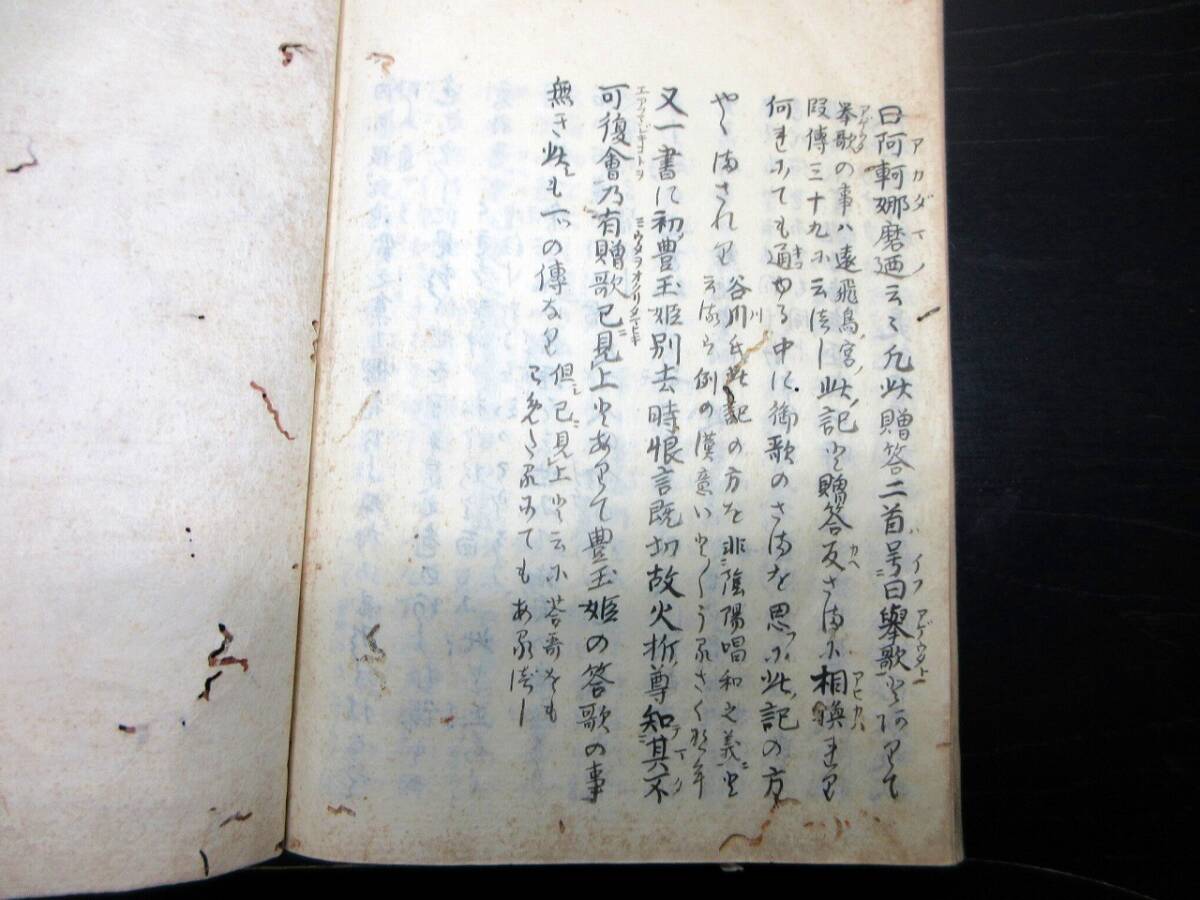 曰阿軻娜磨廼云〻凡此贈答二首号曰擧歌とありて
擧歌の事ハ遠飛鳥宮
段傳三十九に云べし此記と贈答反さまに相換れり
何れにても通ゆる中に御歌のさまを思ふに此記の方
やゝまされり
谷川氏此記の方を非陰陽唱和之義と
云るは例の漢意いとうるさく
又一書に初豊玉姫別去時恨言既切故火折尊知其不
可復會乃有贈歌已見上とありて豊玉姫の答歌の事
無き此も一の傳なり
但已見上と云に答哥をも
こめたるにてもあるべし